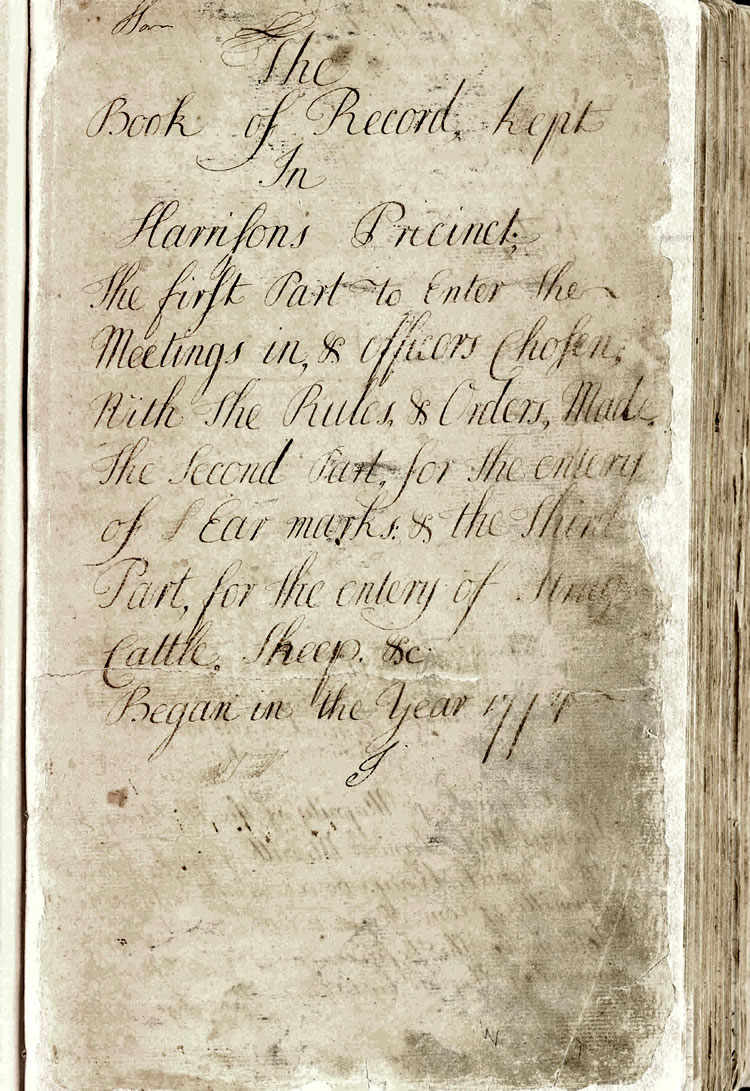 The
Book of Record, kept
In
Harriſons Precinct;
The firſt Part to Enter the
Meetings in, & officors Choſen,
With the Rules, & Orders, Made.
The Second Part, for the entery
of Ear marks. & the Third
Part, for the entery of Stray
Cattle, Sheep. &c
Began in the Year 1774